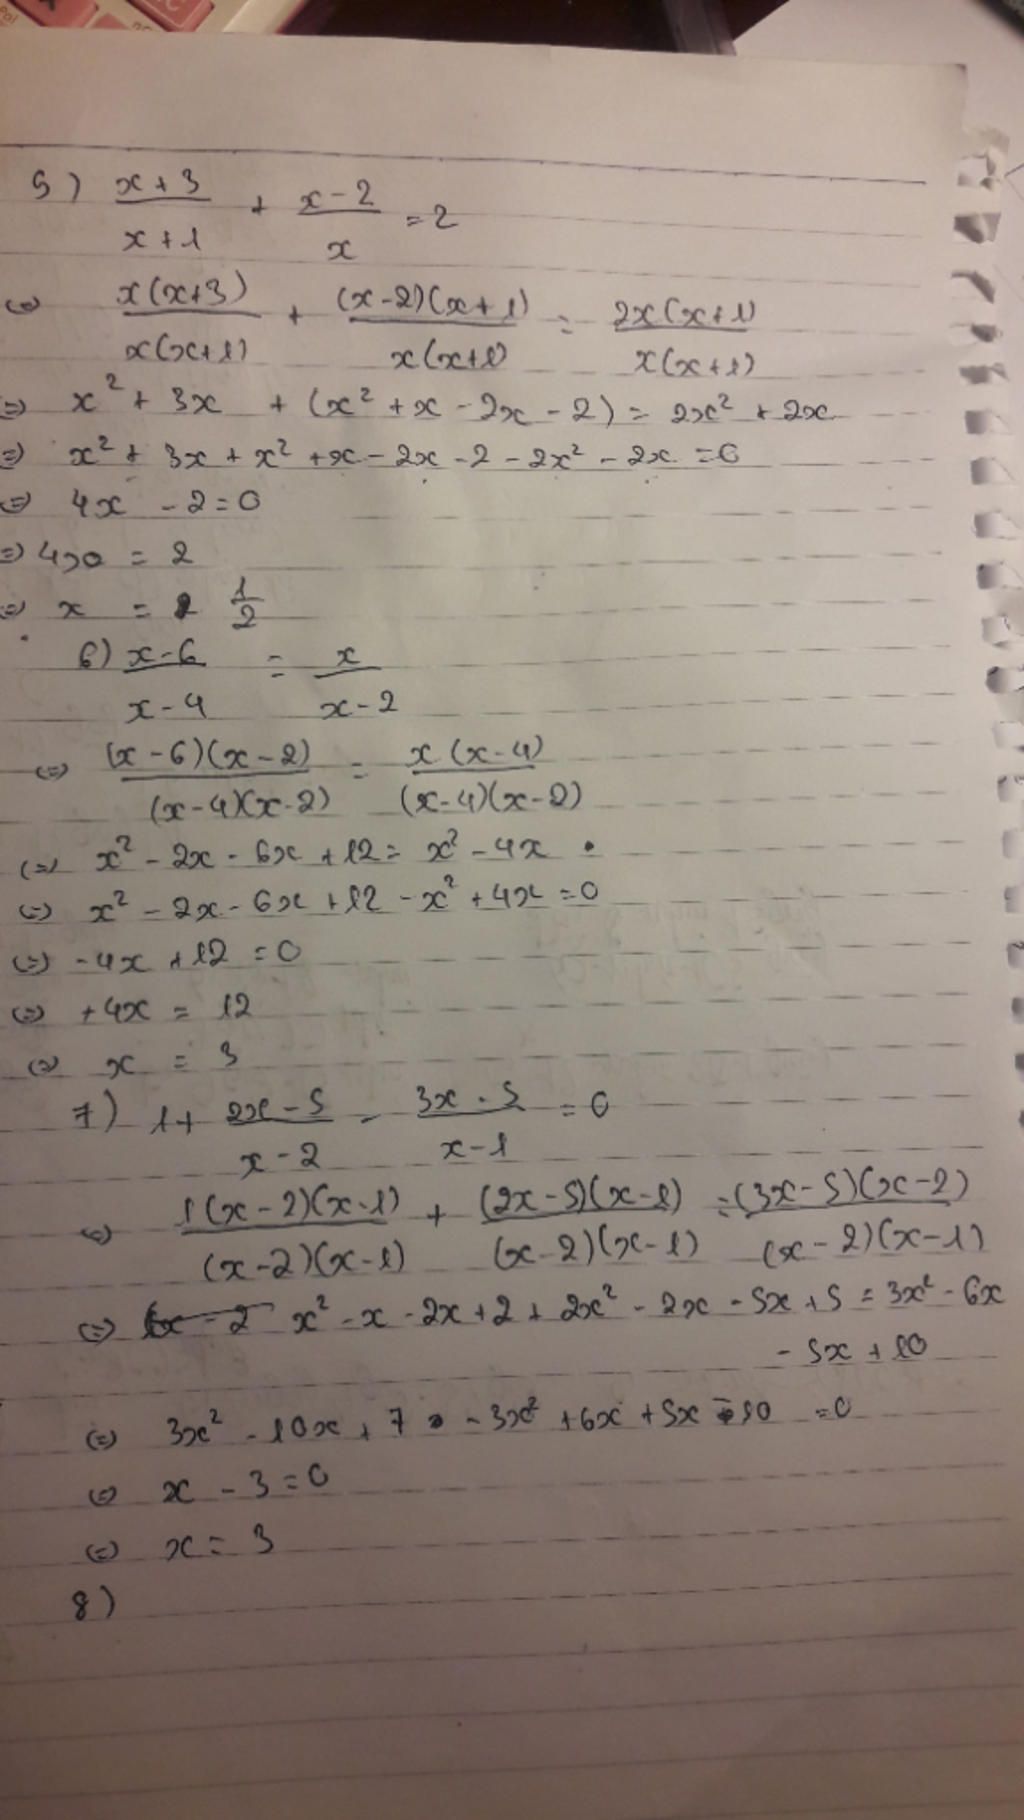 5) (x+3)/(x+1) + (x-2)/x = 2
(=) x(x+3)/x(x+1) + (x-2)(x+1)/x(x+1) = 2x(x+1)/x(x+1)
(=) x² + 3x + (x² + x - 2x - 2) = 2x² + 2x
(=) x² + 3x + x² + x - 2x - 2 - 2x² - 2x = 0
(=) 4x - 2 = 0
(=) 4x = 2
(=) x = 1/2
6) (x-6)/(x-4) = x/(x-2)
(=) (x-6)(x-2)/(x-4)(x-2) = x(x-4)/(x-4)(x-2)
(=) x² - 2x - 6x + 12 = x² - 4x
(=) x² - 2x - 6x + 12 - x² + 4x = 0
(=) -4x + 12 = 0
(=) +4x = 12
(=) x = 3
7) 1 + (2x-5)/(x-2) - (3x-5)/(x-1) = 0
(=) 1(x-2)(x-1)/(x-2)(x-1) + (2x-5)(x-1)/(x-2)(x-1) = (3x-5)(x-2)/(x-2)(x-1)
(=) x² - x - 2x + 2 + 2x² - 2x - 5x + 5 = 3x² - 6x
- 5x + 10
(=) 3x² - 10x + 7 - 3x² + 6x + 5x - 10 = 0
(=) x - 3 = 0
(=) x = 3
8)